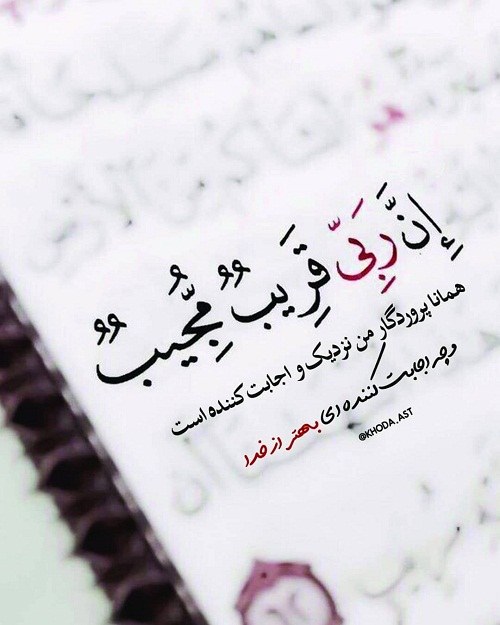 إِنَّ رَبِّی قَرِیبٌ مُّجِیبٌ
همانا پروردگار من نزدیک و اجابت کننده است
و چه اجابت کننده ای بهتر از خدا
@KHODA_AST